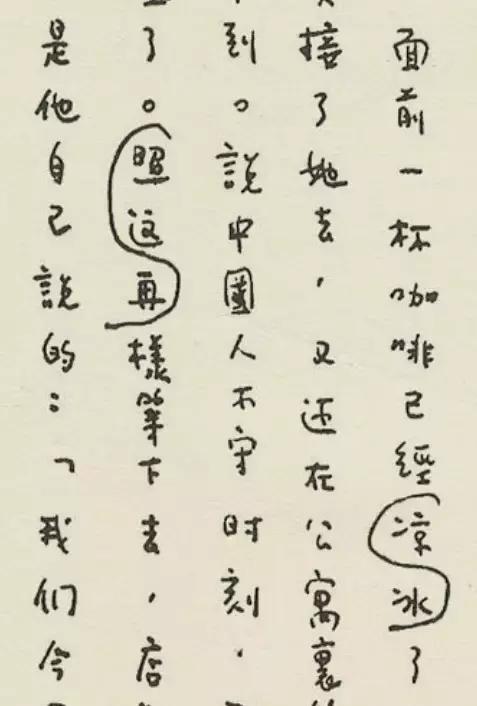 面前一杯咖啡已經凉冰了
接了她去，又还在公寓裏
到。說中國人不守时刻，
了。照这再樣等下去，店
是他自己說的：「我们今